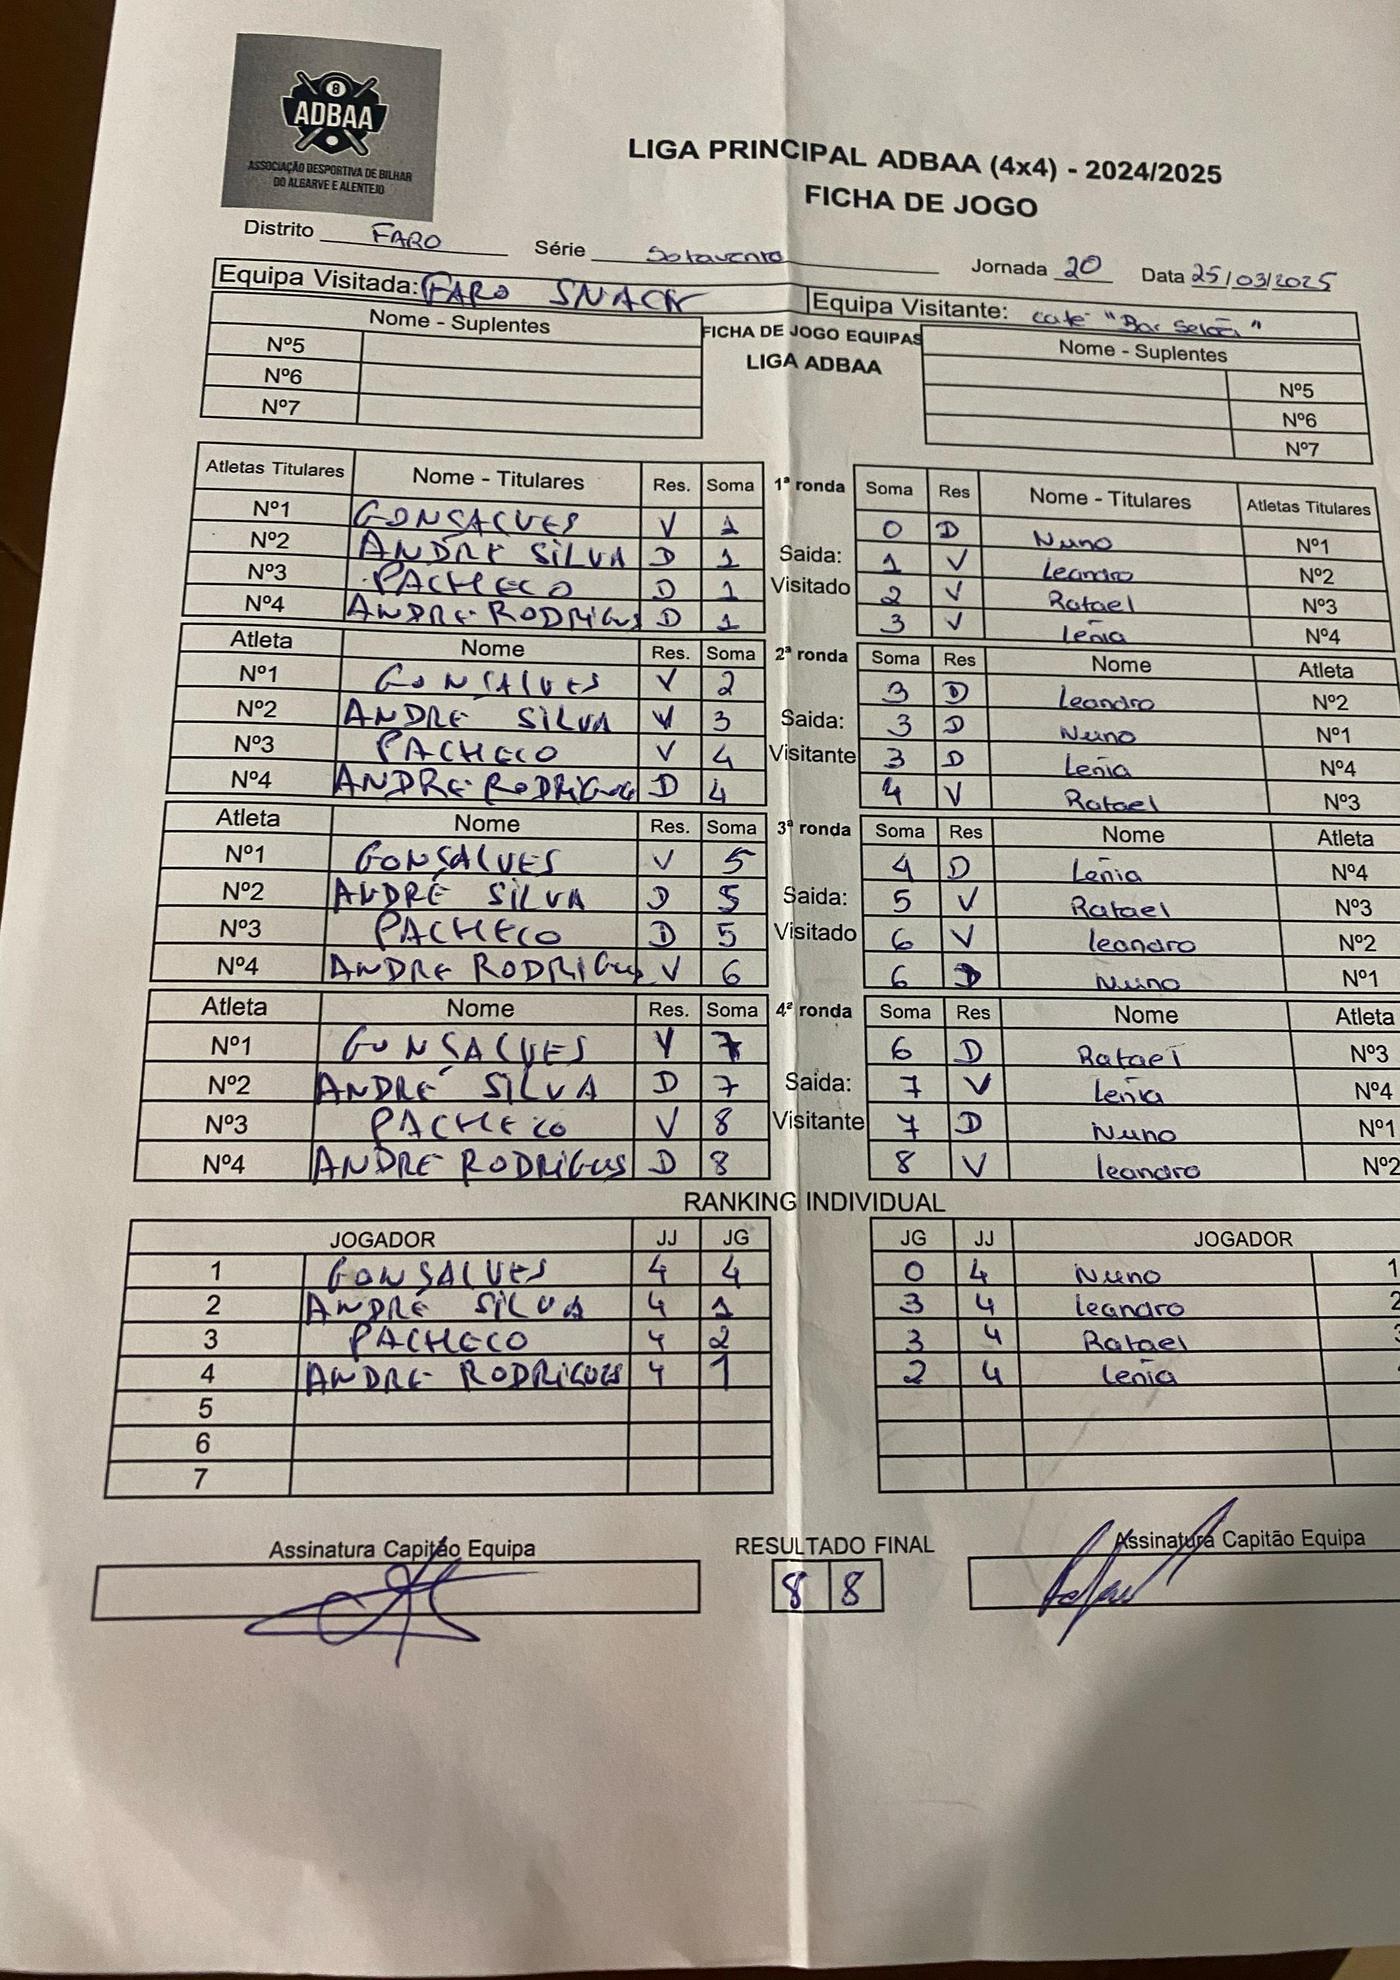 8
ADBAA
ASSOCIAÇÃO DESPORTIVA DE BILHAR
DO ALGARVE E ALENTEJO
LIGA PRINCIPAL ADBAA (4x4) - 2024/2025
FICHA DE JOGO
Distrito FARO Série Sotavento Jornada 20 Data 25/03/2025
Equipa Visitada: FARO SNACK Equipa Visitante: café "Bar Selão"
Nome - Suplentes FICHA DE JOGO EQUIPAS Nome - Suplentes
LIGA ADBAA
Nº5 Nº5
Nº6 Nº6
Nº7 Nº7
Atletas Titulares Nome - Titulares Res. Soma 1ª ronda Soma Res Nome - Titulares Atletas Titulares
Nº1 GONSALVES V 1 0 D Nuno Nº1
Nº2 ANDRÉ SILVA D 1 Saida: 1 V Leandro Nº2
Nº3 PACHECO D 1 Visitado 2 V Rafael Nº3
Nº4 ANDRE RODRIGUS D 1 3 V Leñia Nº4
Atleta Nome Res. Soma 2ª ronda Soma Res Nome Atleta
Nº1 GONSALVES V 2 3 D Leandro Nº2
Nº2 ANDRÉ SILVA V 3 Saida: 3 D Nuno Nº1
Nº3 PACHECO V 4 Visitante 3 D Leñia Nº4
Nº4 ANDRE RODRIGUES D 4 4 V Rafael Nº3
Atleta Nome Res. Soma 3ª ronda Soma Res Nome Atleta
Nº1 GONSALVES V 5 4 D Leñia Nº4
Nº2 ANDRÉ SILVA D 5 Saida: 5 V Rafael Nº3
Nº3 PACHECO D 5 Visitado 6 V leandro Nº2
Nº4 ANDRE RODRIGUS V 6 6 D Nuno Nº1
Atleta Nome Res. Soma 4ª ronda Soma Res Nome Atleta
Nº1 GONSALVES V 7 6 D Rafael Nº3
Nº2 ANDRÉ SILVA D 7 Saida: 7 V leñia Nº4
Nº3 PACHECO V 8 Visitante 7 D Nuno Nº1
Nº4 ANDRE RODRIGUS D 8 8 V leandro Nº2
RANKING INDIVIDUAL
JOGADOR JJ JG JG JJ JOGADOR
1 GONSALVES 4 4 0 4 Nuno 1
2 ANDRÉ SILVA 4 1 3 4 leandro 2
3 PACHECO 4 2 3 4 Rafael 3
4 ANDRE RODRIGUES 4 1 2 4 leñia
5
6
7
Assinatura Capitão Equipa RESULTADO FINAL Assinatura Capitão Equipa
8 8